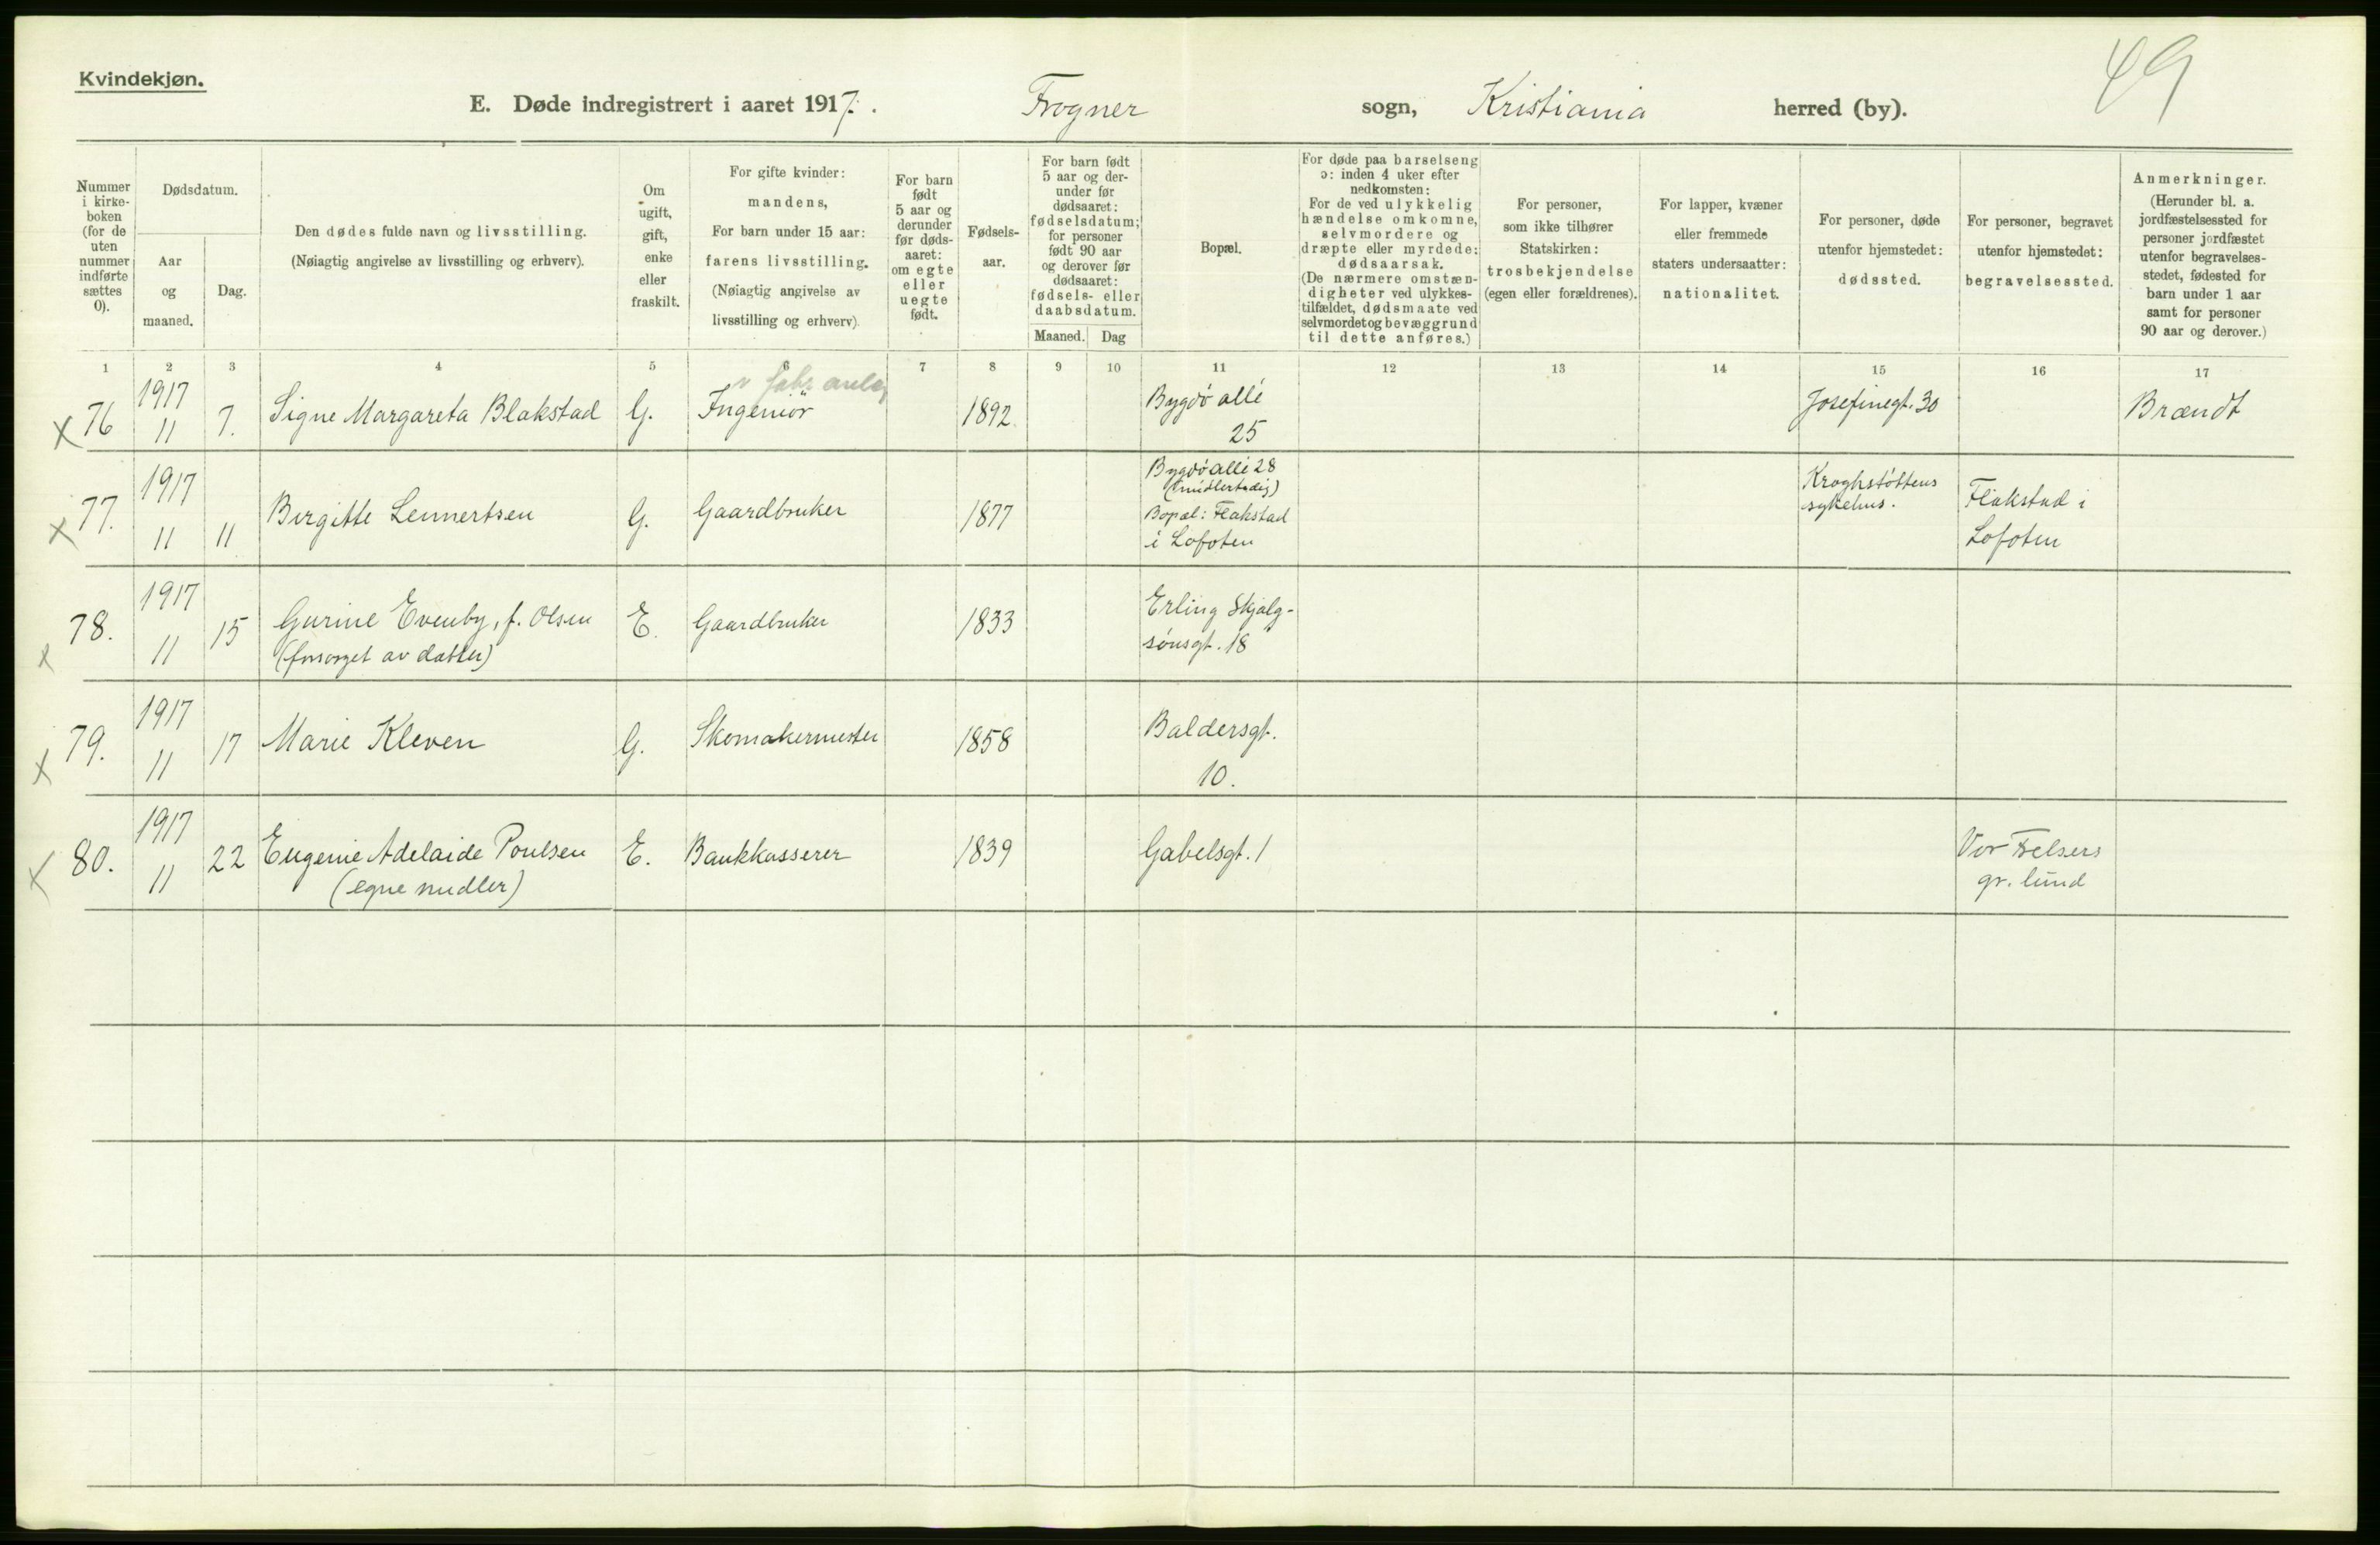 Kvindekjøn.
49
E. Døde indregistrert i aaret 1917. Frogner sogn, Kristiania herred (by).
Nummer i kirke-boken (for de uten nummer indførte sættes 0).
Dødsdatum.
Aar og maaned.
Dag.
Den dødes fulde navn og livsstilling.
(Nøiagtig angivelse av livsstilling og erhverv).
Om ugift, gift, enke eller fraskilt.
For gifte kvinder:
mandens,
For barn under 15 aar:
farens livsstilling.
(Nøiagtig angivelse av
livsstilling og erhverv).
For barn født 5 aar og derunder før døds-aaret: om egte eller uegte født.
Fødsels-aar.
For barn født 5 aar og der-under før dødsaaret: fødselsdatum; for personer født 90 aar og derover før dødsaaret: fødsels- eller daabsdatum.
Maaned. Dag
Bopæl.
For døde paa barselseng
ɔ: inden 4 uker efter
nedkomsten:
For de ved ulykkelig
hændelse omkomne,
selvmordere og
dræpte eller myrdede:
dødsaarsak.
(De nærmere omstæn-
digheter ved ulykkes-
tilfældet, dødsmaate ved
selvmordet og bevæggrund
til dette anføres.)
For personer,
som ikke tilhører
Statskirken:
trosbekjendelse
(egen eller forældrenes).
For lapper, kvæner
eller fremmede
staters undersaatter:
nationalitet.
For personer, døde
utenfor hjemstedet:
dødssted.
For personer, begravet
utenfor hjemstedet:
begravelsessted.
Anmerkninger.
(Herunder bl. a.
jordfæstelsessted for
personer jordfæstet
utenfor begravelses-
stedet, fødested for
barn under 1 aar
samt for personer
90 aar og derover.)
1 2 3 4 5 6 7 8 9 10 11 12 13 14 15 16 17
x 76 1917 11 7. Signe Margareta Blakstad G. Ingeniör 1892. Bygdö allé 25 Josefinegt. 30 Brændt
x 77. 1917 11 11 Birgitte Lennertsen G. Gaardbruker 1877 Bygdö allé 28
(midlertidig)
Bopæl: Flakstad
i Lofoten
Kroghstöttens
sykehus.
Flakstad i
Lofoten
x 78. 1917 11 15 Gurine Evenby, f. Olsen
(forsørget av datter)
E. Gaardbruker 1833 Erling Skjalg-
sönsgt. 18
x 79. 1917 11 17 Marie Kleven G. Skomakermester 1858 Baldersgt.
10.
x 80. 1917 11 22 Eugenie Adelaide Poulsen
(egne midler)
E. Bankkasserer 1839 Gabelsgt. 1 Vor Frelsers
gr. lund